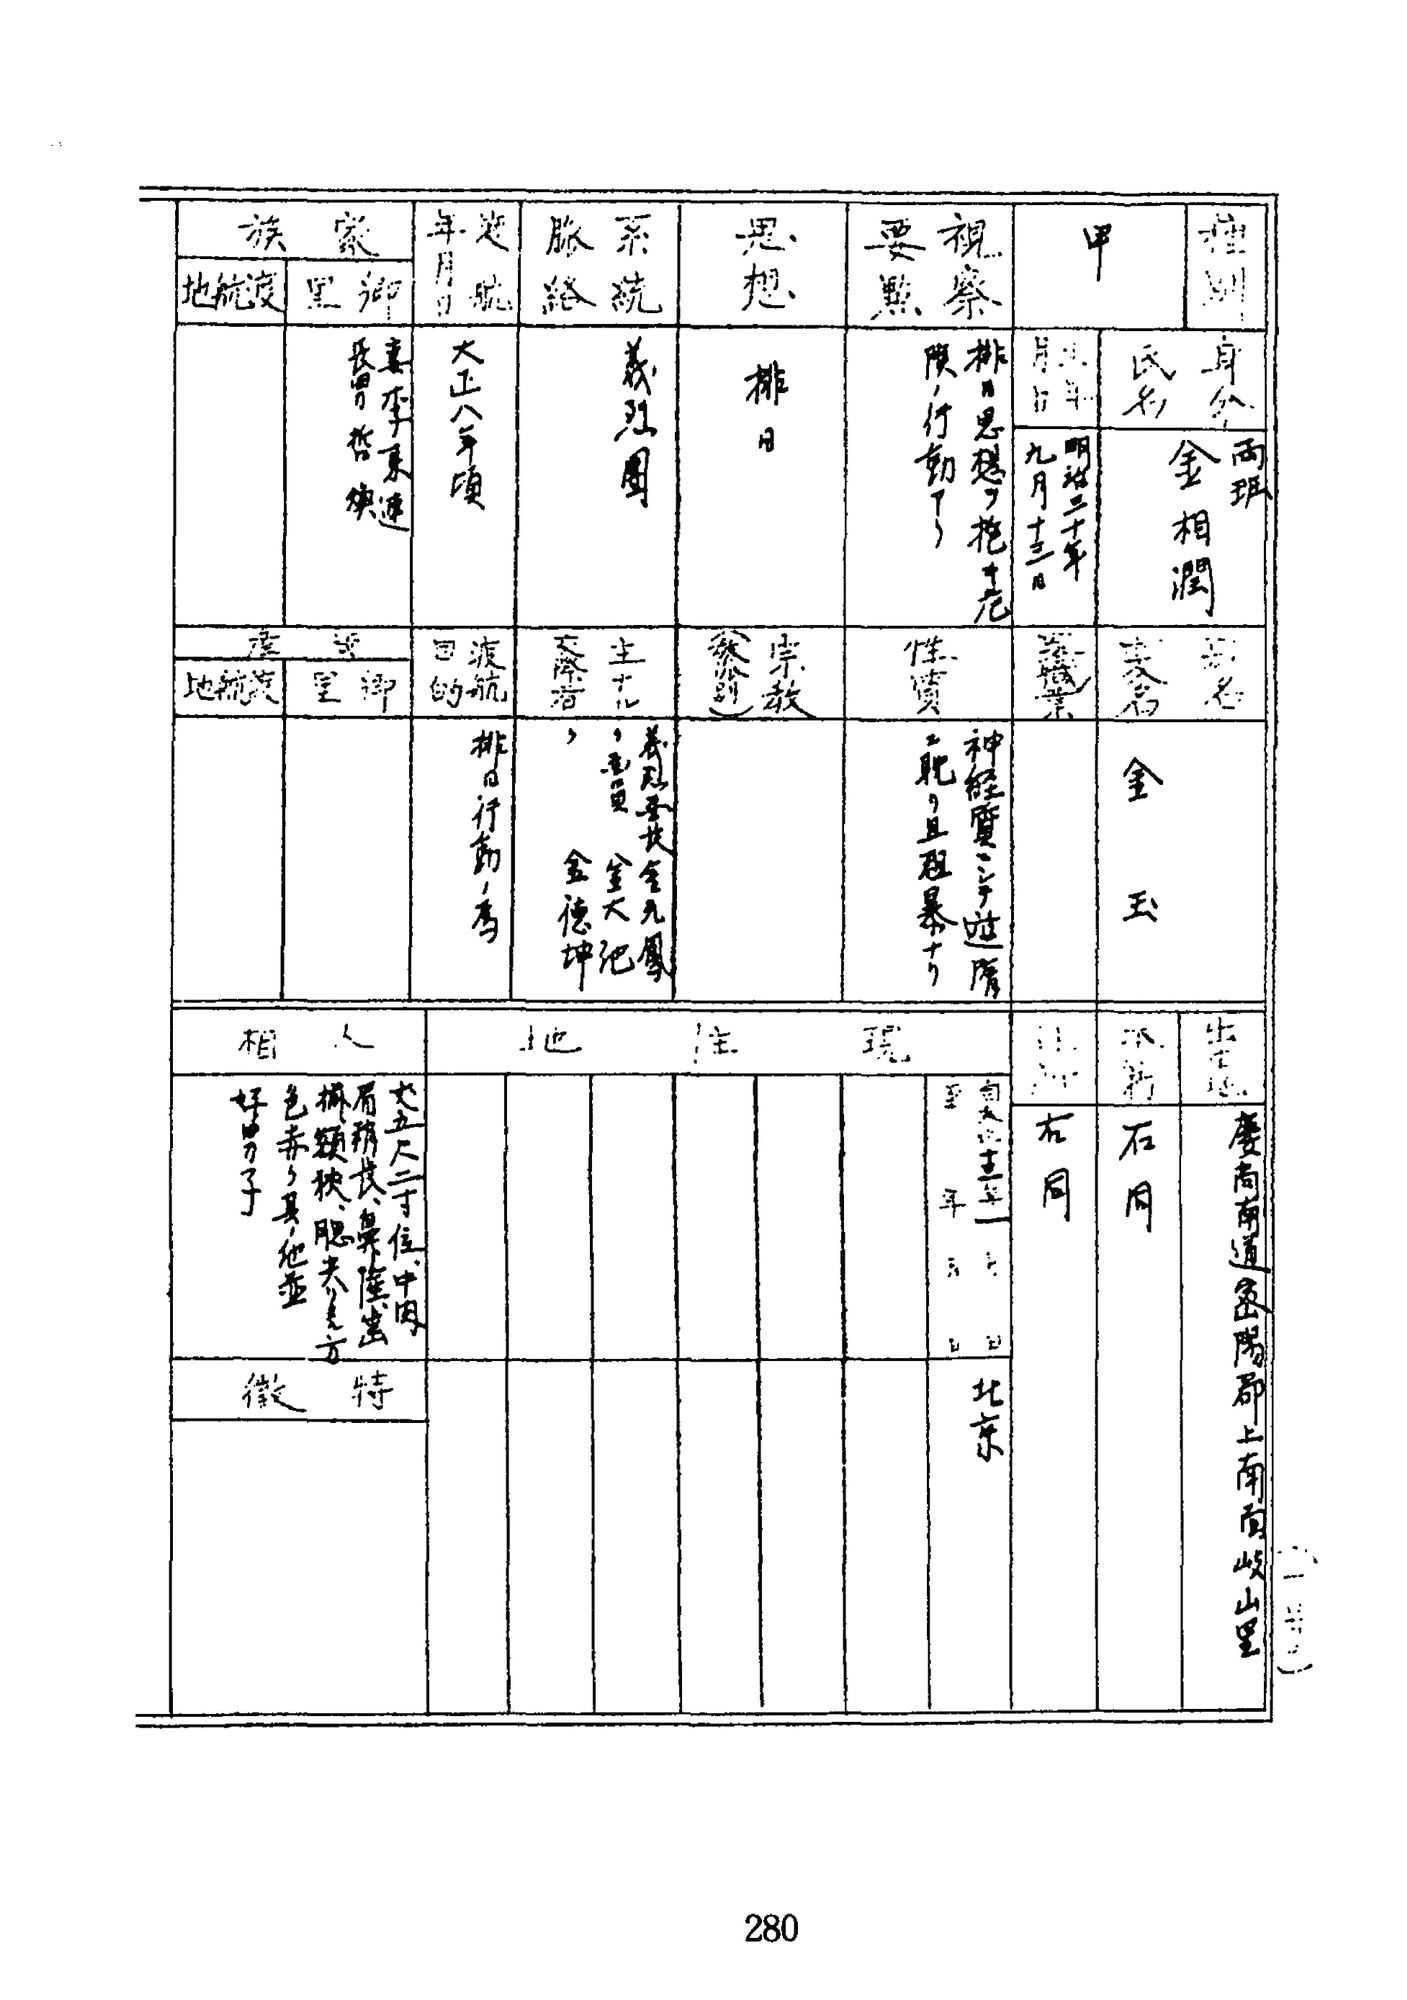 種別
甲
身分
氏名
両班
金相潤
生年
月日
明治三十年
九月十三日
視察
要點
排日思想ヲ抱キ危
険ノ行動アリ
思想
排日
系統
脈絡
義烈團
渡航
年月日
大正八年頃
家族
郷里
妻李東連
長男哲煥
渡航地
別名
変名
金玉
職業
性質
神経質ニシテ遊惰
ニ耽リ且粗暴ナリ
宗教
(教派別)
主ナル
交際者
金元鳳
〃 金大池
〃 金德坤
渡航
目的
排日行動ノ為
資産
郷里
渡航地
出生地
慶尚南道密陽郡上南面岐山里
本籍
右同
住所
右同
現住地
自大正十二年一月 日
至 年 月 日
北京
人相
丈五尺二寸位、中肉
眉稍長、鼻隆出
額狭、腮尖リ
色赤ク其ノ他並
好男子
特徴
280